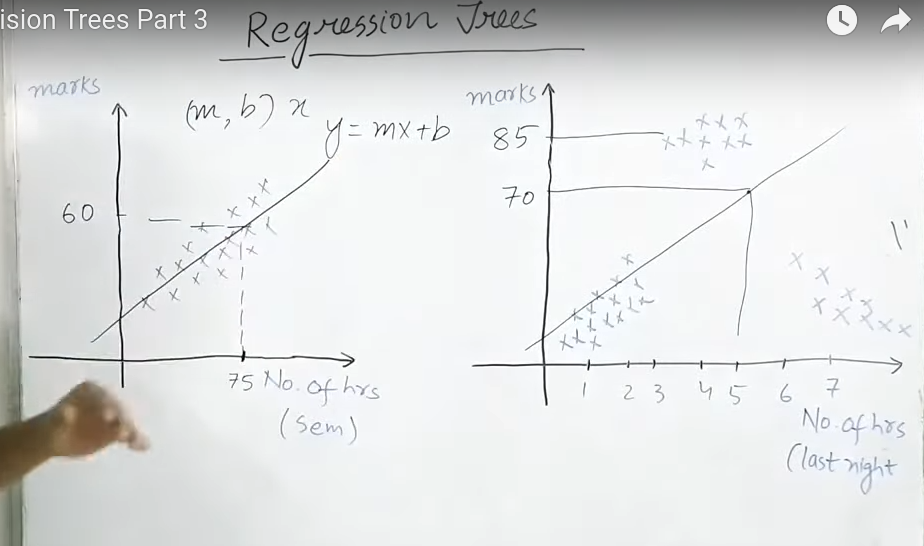 ision Trees Part 3
Regression Trees
marks
(m, b) x
y = mx+b
60
75 No. of hrs
(sem)
marks
85
70
1 2 3 4 5 6 7
No. of hrs
(last night